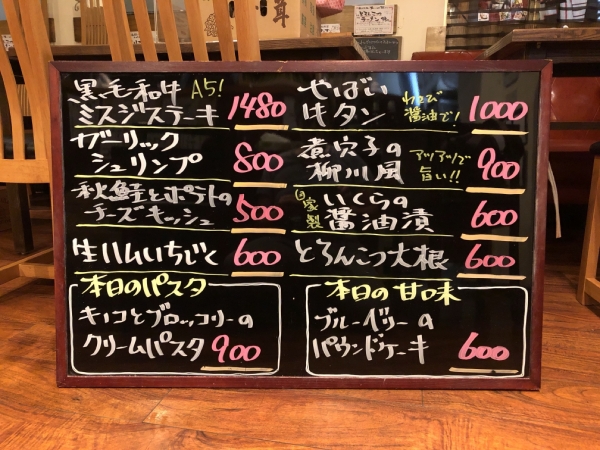 黒毛和牛 A5!
ミスジステーキ 1480
ガーリック
シュリンプ 800
秋鮭とポテトの
チーズキッシュ 500
生ハムいちじく 600
本日のパスタ
キノコとブロッコリーの
クリームパスタ 900
やばい
牛タン わさび醤油で! 1000
煮穴子の
柳川風 アツアツで旨い!! 900
自家製 いくらの
醤油漬 600
とろんこつ大根 600
本日の甘味
ブルーベリーの
パウンドケーキ 600